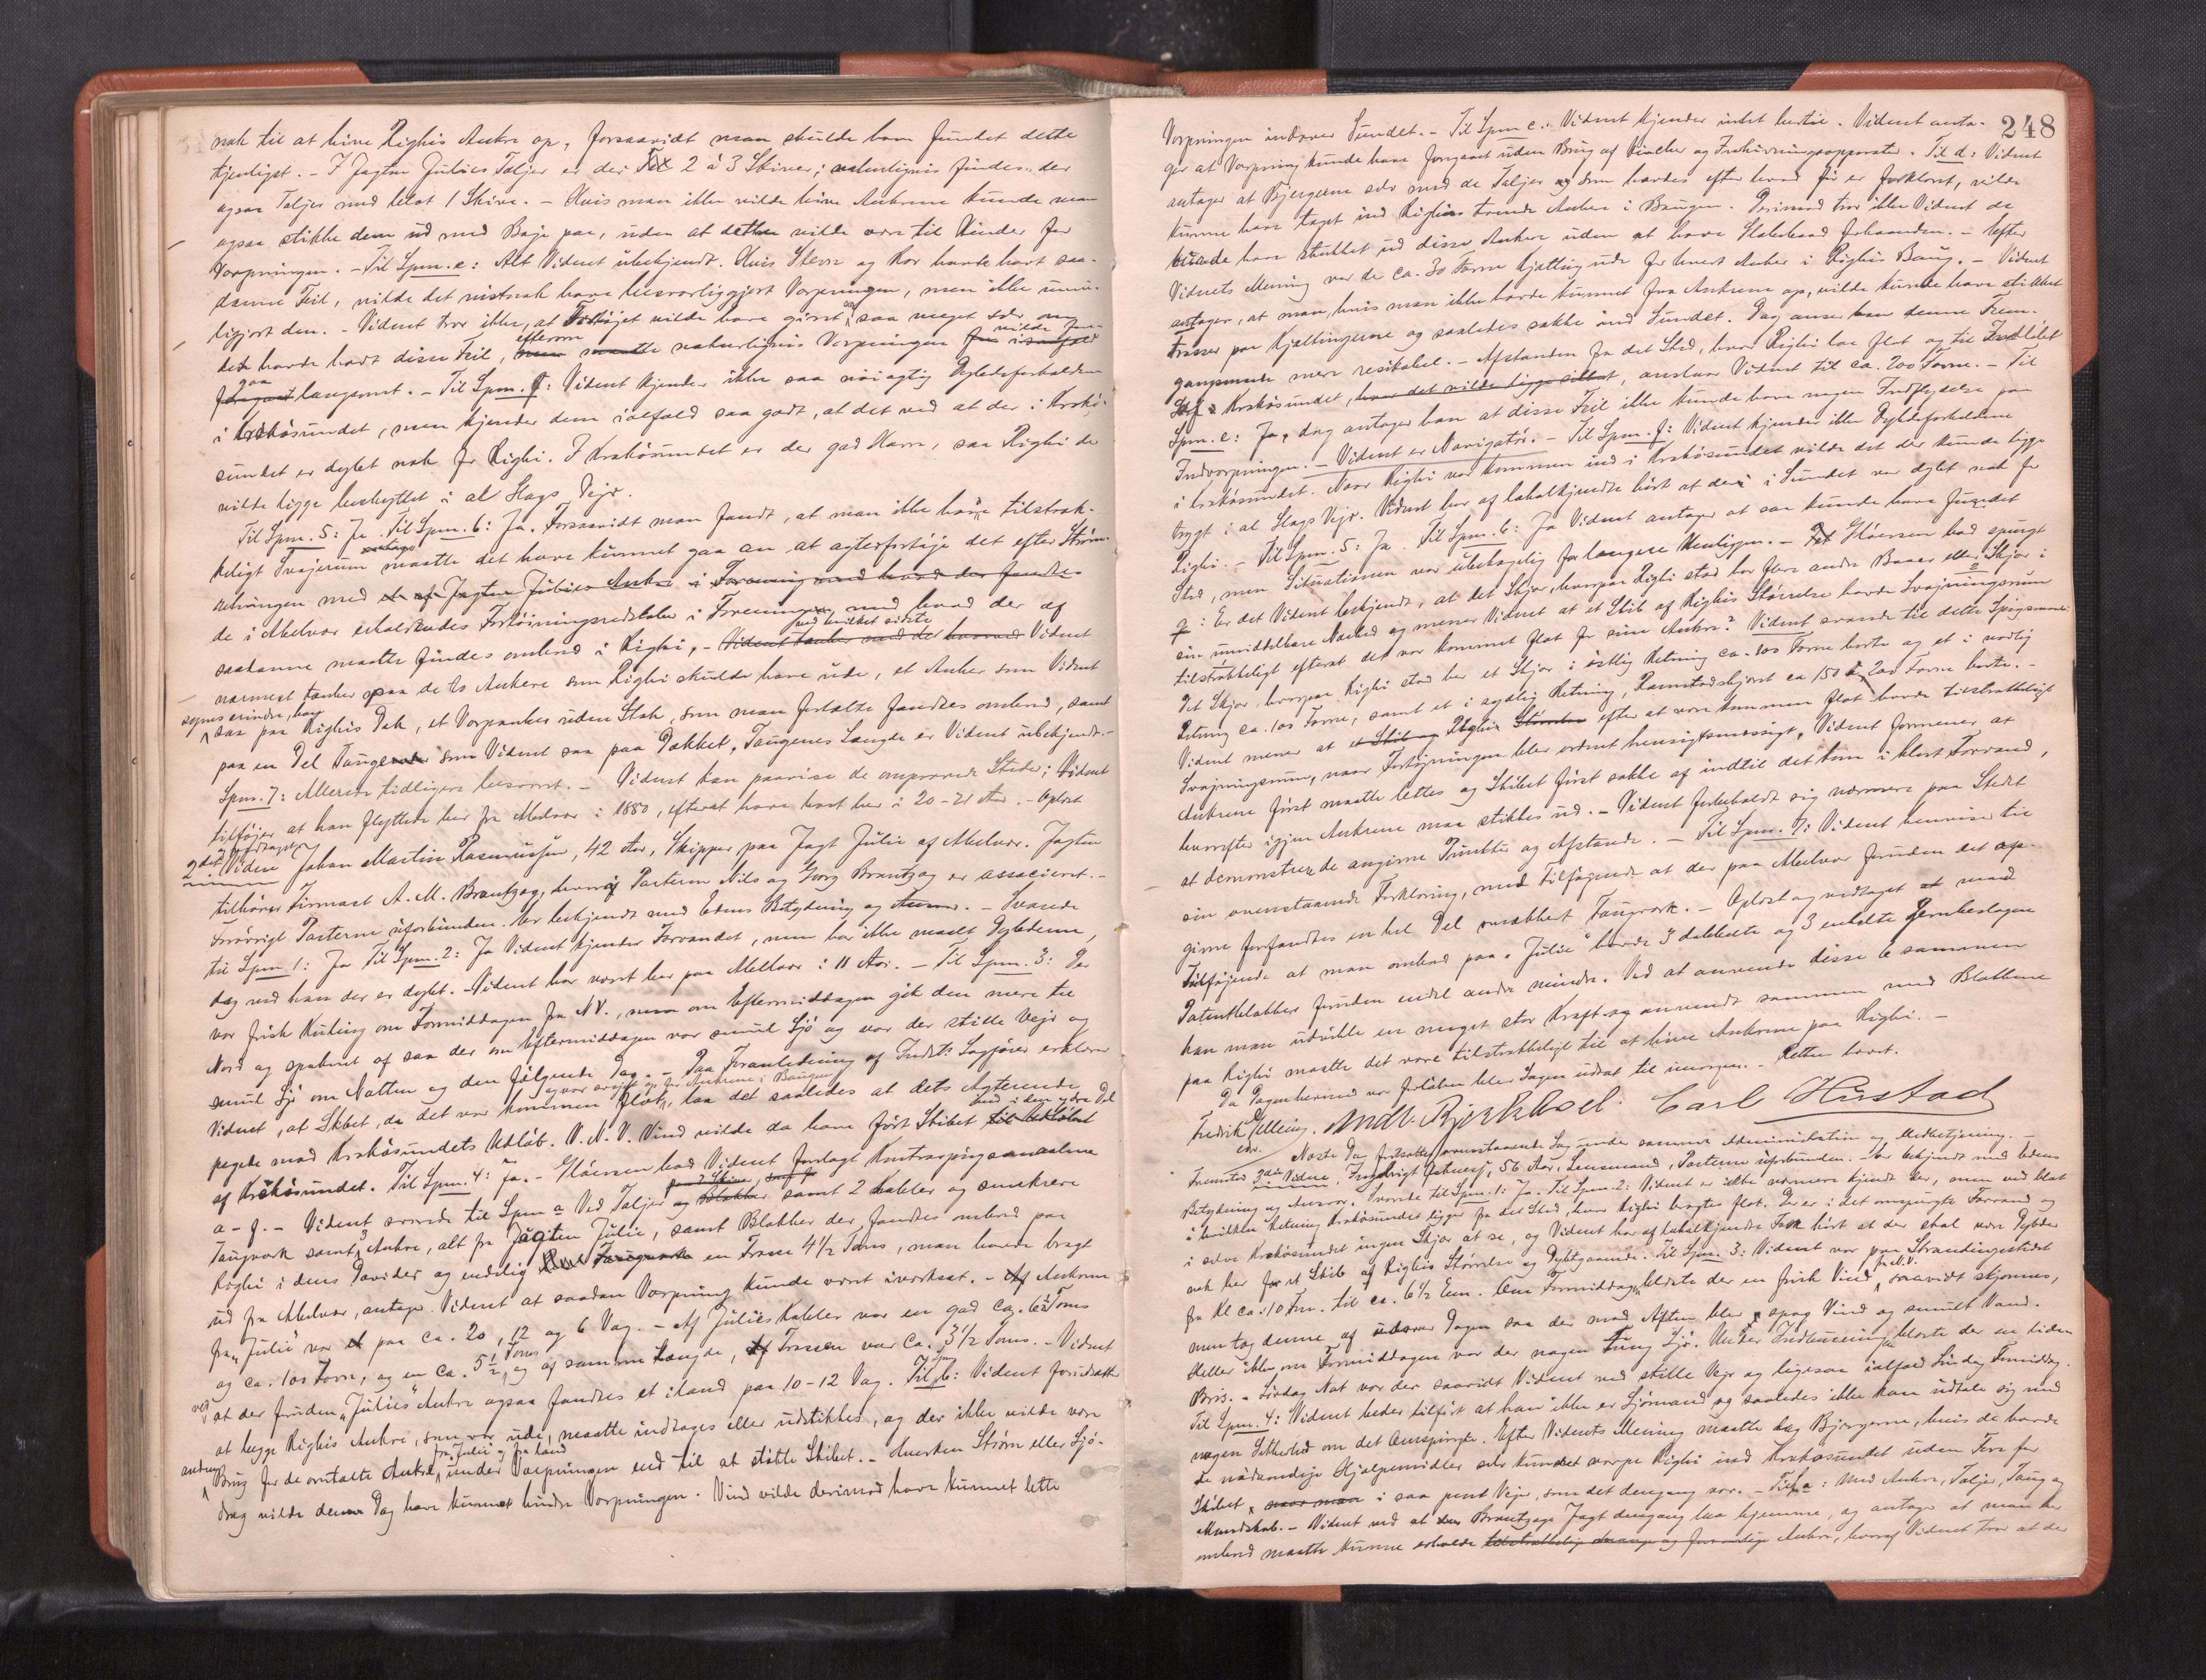 nok til at hive Righis Ankre op, forsaavidt man skulde have fundet dette
tjenligst. - I Jagten Julies Taljer er der 2 à 3 Skiver; naturligvis findes der
ogsaa Taljer med blot 1 Skive. - Hvis man ikke vilde hive Ankrene kunde man
ogsaa stikke dem ud med Bøje paa, uden at dette vilde være til Hinder for
Vorpningen. - Til Spm. e: Alt Vidnet ubekjendt. Hvis Stevn og Ror havde havt saa-
danne Feil, vilde det vistnok have besværliggjort Vorpningen, men ikke umu-
liggjort den. - Vidnet tror ikke, at Fartøjet vilde have giret saa meget selv om
det havde havt disse Feil, efterom naturligvis Vorpningen vilde fore-
gaa langsomt. - Til Spm. f: Vidnet kjender ikke saa nøiagtig Dybdeforholdene
i Krskøsundet, men kjender dem ialfald saa godt, at det ved at der i Krskø-
sundet er dybt nok for Righi. I Krskøsundet er der god Havn, saa Righi der
vilde ligge beskyttet i al Slags Vejr.
Til Spm. 5: Ja. Til Spm. 6: Ja. Forsaavidt man fandt, at man ikke havde tilstræk-
keligt Svajerum maatte det have kunnet gaa an at agterfortøje det efter Strøm-
sætningen med et af Jagten Julies Ankre i Forening med hvad der fandtes
de i Melvær erholdendes Fortøiningsredskaber i Foreningen med hvad der af
saadanne maatte findes ombord i Righi, - ved hvilket sidste Vidnet
nærmest tænker paa de to Ankere som Righi skulde have ude, et Anker som Vidnet
synes erindre, han saa paa Righis Dæk, et Vorpanker uden Stok, som man fortalte fandtes ombord, samt
paa en Del Tauge som Vidnet saa paa Dækket. Taugenes Længde er Vidnet ubekjendt. -
Spm. 7: Allerede tidligere besvaret. - Vidnet kan paavise de omprovede Steder; Vidnet
tilføjer at han flyttede her fra Melvær i 1880, efterat have boet her i 20-21 Aar. - Oplæst
2det Vidne Johan Martin Rasmussen, 42 Aar, Skipper paa Jagt Julie af Melvær. Jagten
tilhører Firmaet A. M. Brantzæg, hvoraf Parterne Nils og Georg Brantzæg er associeret. -
Forøvrigt Parterne uforbunden. Er bekjendt med Edens Betydning og Ansvar. - Svarede
til Spm 1: Ja Til Spm. 2: Ja Vidnet kjender Farvandet, men har ikke maalt Dybderne,
dog ved han der er dybt. Vidnet har været her paa Mellvær i 11 Aar. - Til Spm. 3: Der
var frisk Kuling om Formiddagen fra NV., men om Eftermiddagen gik den mere til
Nord og spaknet af saa der om Eftermiddagen var smul Sjø og var der stille Vejr og
smul Sjø om Natten og den følgende Dag. - Paa Foranledning af Indst: Sagfører erklærer
Vidnet, at Skibet, da det var kommen flot, laa det saaledes at dets Agterende
pegede mod Krskøsundets Udløb. V. N. V. Vind vilde da have ført Skibet ind i den ydre Del
af Krskøsundet. Til Spm. 4: Ja. - Gløersen bad Vidnet forelagt Kontraspørgsmaalene
a - f. - Vidnet svarede til Spm a Ved Taljer og Blokker samt 2 Kabler og smækrere
Taugværk samt 3 Ankre, alt fra Jagten Julie, samt Blokker der fandtes ombord paa
Righi i dens Davider og endelig en Trosse 4½ Toms, man havde bragt
ud fra Melvær, antager Vidnet at saadan Vorpning kunde været iværksat. - Af Ankrene
fra "Julie" var et paa ca. 20, 12 og 6 Vog. - Af Julies Kabler var en god ca. 6½ Toms
og ca. 100 Favn, og en ca. 5½ Toms, og af samme Længde, Trossen var ca. 3½ Toms. - Vidnet
ved at der foruden "Julies" Ankre ogsaa fandtes et iland paa 10-12 Vog. Til Spm b: Vidnet forudsætter
at begge Righis Ankre, som var ude, maatte indtages eller udstikkes, og der ikke vilde være
anden Brug for de omtalte Ankre, fra Julie og fra land under Vorpningen end til at støtte Skibet. - Hverken Strøm eller Sjø-
drag vilde denne Dag have kunnet hindre Vorpningen. Vind vilde derimod have kunnet lette
248
Vorpningen indover Sundet. - Til Spm c.: Vidnet kjender intet hertil. Vidnet anta-
ger at Vorpning kunde have foregaaet uden Brug af Vincher og Indhivningsapparater. Til d: Vidnet
antager at Bjergerne selv med de Taljer som havdes efter hvad før er forklaret, vilde
kunne have taget ind Righis tvende Ankere i Baugen. Derimod tror ikke Vidnet de
kunde have stukket ud disse Ankere uden at have Slæbebaad forhaanden. - Efter
Vidnets Mening var der ca. 30 Favne Kjetting ude for hvert Anker i Righis Baug. - Vidnet
antager, at man, hvis man ikke havde kunnet faa Ankrene op, vilde kunde have stikket
Trosser paa Kjettingerne og saaledes sakke ind Sundet. Dog anser han denne Frem-
gangsmaade mere resikabel. - Afstanden fra det Sted, hvor Righi laa flot og til Indløbet
af Krskøsundet, hvor det vilde ligge sikkert, anslaar Vidnet til ca. 200 Favne. - Til
Spm. e: Ja, dog antager han at disse Feil ikke kunde have nogen Indflydelse paa
Indvorpningen. - Vidnet er Navigatør. - Til Spm. f: Vidnet kjender ikke Dybdeforholdene
i Krskøsundet. Naar Righi var kommen ind i Krskøsundet vilde det der kunde ligge
trygt i al Slags Vejr. Vidnet har af lokalkjendte hørt at der i Sundet var dybt nok for
Righi. - Til Spm. 5: Ja. Til Spm. 6: Ja Vidnet antager at saa kunde have fundet
Sted, men Situationen var ubehagelig for længere Henliggen. - Gløersen bad spurgt
g: Er det Vidnet bekjendt, at det Skjær, hvorpaa Righi stod har flere andre Baaer eller Skjær i
sin umiddelbare Nærhed og mener Vidnet at et Skib af Righis Størrelse havde Svajningsrum
tilstrækkeligt efterat det var kommet flot for sine Ankre? Vidnet svarede til dette Spørgsmaal:
Det Skjær, hvorpaa Righi stod har et Skjær i østlig Retning ca. 100 Favne borte og et i nordlig
Retning ca. 100 Favne, samt et i sydlig Retning, Ramstadskjæret ca 150 à 200 Favne borte. -
Vidnet mener at Righi efter at være kommen flot havde tilstrækkeligt
Svajningsrum, naar Fortøjningen blev ordnet hensigtsmæssigt. Vidnet formener at
Ankrene først maatte lettes og Skibet først sakke af indtil det kom i klart Farvand,
hvorefter igjen Ankrene maa stikkes ud. - Vidnet forbeholdt sig nærmere paa Stedet
at demonstrere de angivne Punkter og Afstande. - Til Spm. 7: Vidnet henviser til
sin ovenstaaende Forklaring, med Tilføjende at der paa Melvær foruden det op-
givne forfandtes en hel Del smækkert Taugværk. - Oplæst og vedtaget med
Tilføjende at man ombord paa "Julie" havde 3 dobbelte og 3 enkelte Jernbeslagne
Patentblokker foruden endel andre mindre. Ved at anvende disse 6 sammen
kan man udvikle en meget stor Kraft og anvendt sammen med Blokkene
paa Righi maatte det være tilstrækkeligt til at hive Ankrene paa Righi. -
Da Dagen hermed var forløben blev Sagen udsat til imorgen. - Retten hævet.
Fredrik Pelling. Andr. Bjerkhoel. Carl Hustad
Næste Dag fortsattes ovenstaaende Sag under samme Administration og Medbetjening. -
Fremstod 3die Vidne, 56 Aar, Lensmand, Parterne uforbunden. Er bekjendt med Edens
Betydning og Ansvar. Svarede til Spm. 1: Ja. Til Spm. 2: Vidnet er ikke nærmere kjendt her, men ved blot
i hvilken Retning Krskøsundet ligger fra det Sted, hvor Righi bragtes flot. Der er i det omspurgte Farvand og
i selve Krskøsundet ingen Skjær at se, og Vidnet har af lokalkjendte Folk hørt at der skal være Dybde
nok her for et Skib af Righis Størrelse og Dybtgaaende. Til Spm. 3: Vidnet var paa Strandingsstedet
fra Kl ca. 10 Fm. til ca. 6½ Em. Om Formiddagen blæste der en frisk Vind fra N.V. saavidt skjønnes,
men tog denne af udover Dagen saa der mod Aften blev spag Vind og smult Vand.
Heller ikke om Formiddagen var der nogen Tung Sjø. Under Indbuxeringen blæste der en liden
Bris. - Lørdag Nat var der saavidt Vidnet ved stille Vejr og ligesaa ialfald Søndag Formiddag.
Til Spm. 4: Vidnet beder tilført at han ikke er Sjømand og saaledes ikke kan udtale sig med
nogen Sikkerhed om det Omspurgte. Efter Vidnets Mening maatte dog Bjergerne, hvis de havde
de nødvendige Hjælpemidler selv kundet vorpe Righi ind Krskøsundet uden Fare for
Skibet i saa pent Vejr, som det dengang var. - Til a: Med Ankre, Taljer, Taug og
Mandskab. - Vidnet ved at Brantzægs Jagt dengang laa hjemme, og antager at man her
ombord maatte kunne erholde tilstrækkelig mange og forsvarlige Ankre, hvoraf Vidnet tror at der